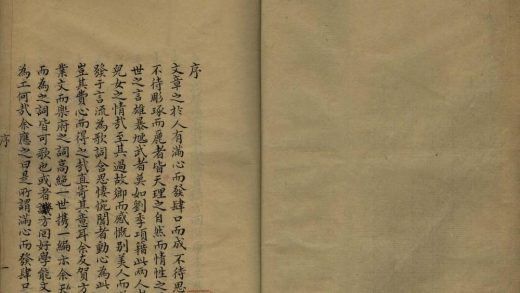 序
文章之於人有滿心而發肆口而成不待思
不待彫琢而麗者皆天理之自然而情性之
世之言雄暴虓武者莫如劉季項籍此兩人
兒女之情哉至其過故鄉而感慨別美人而
發于言流為歌詞含思悽惋聞者動心為此
豈其費心而得之哉直寄其意耳余友賀方
業文而樂府之詞高絕一世携一編示余
而為之詞皆可歌也或者譏方回好學能文
為工何哉余應之曰是所謂滿心而發肆口
序
一